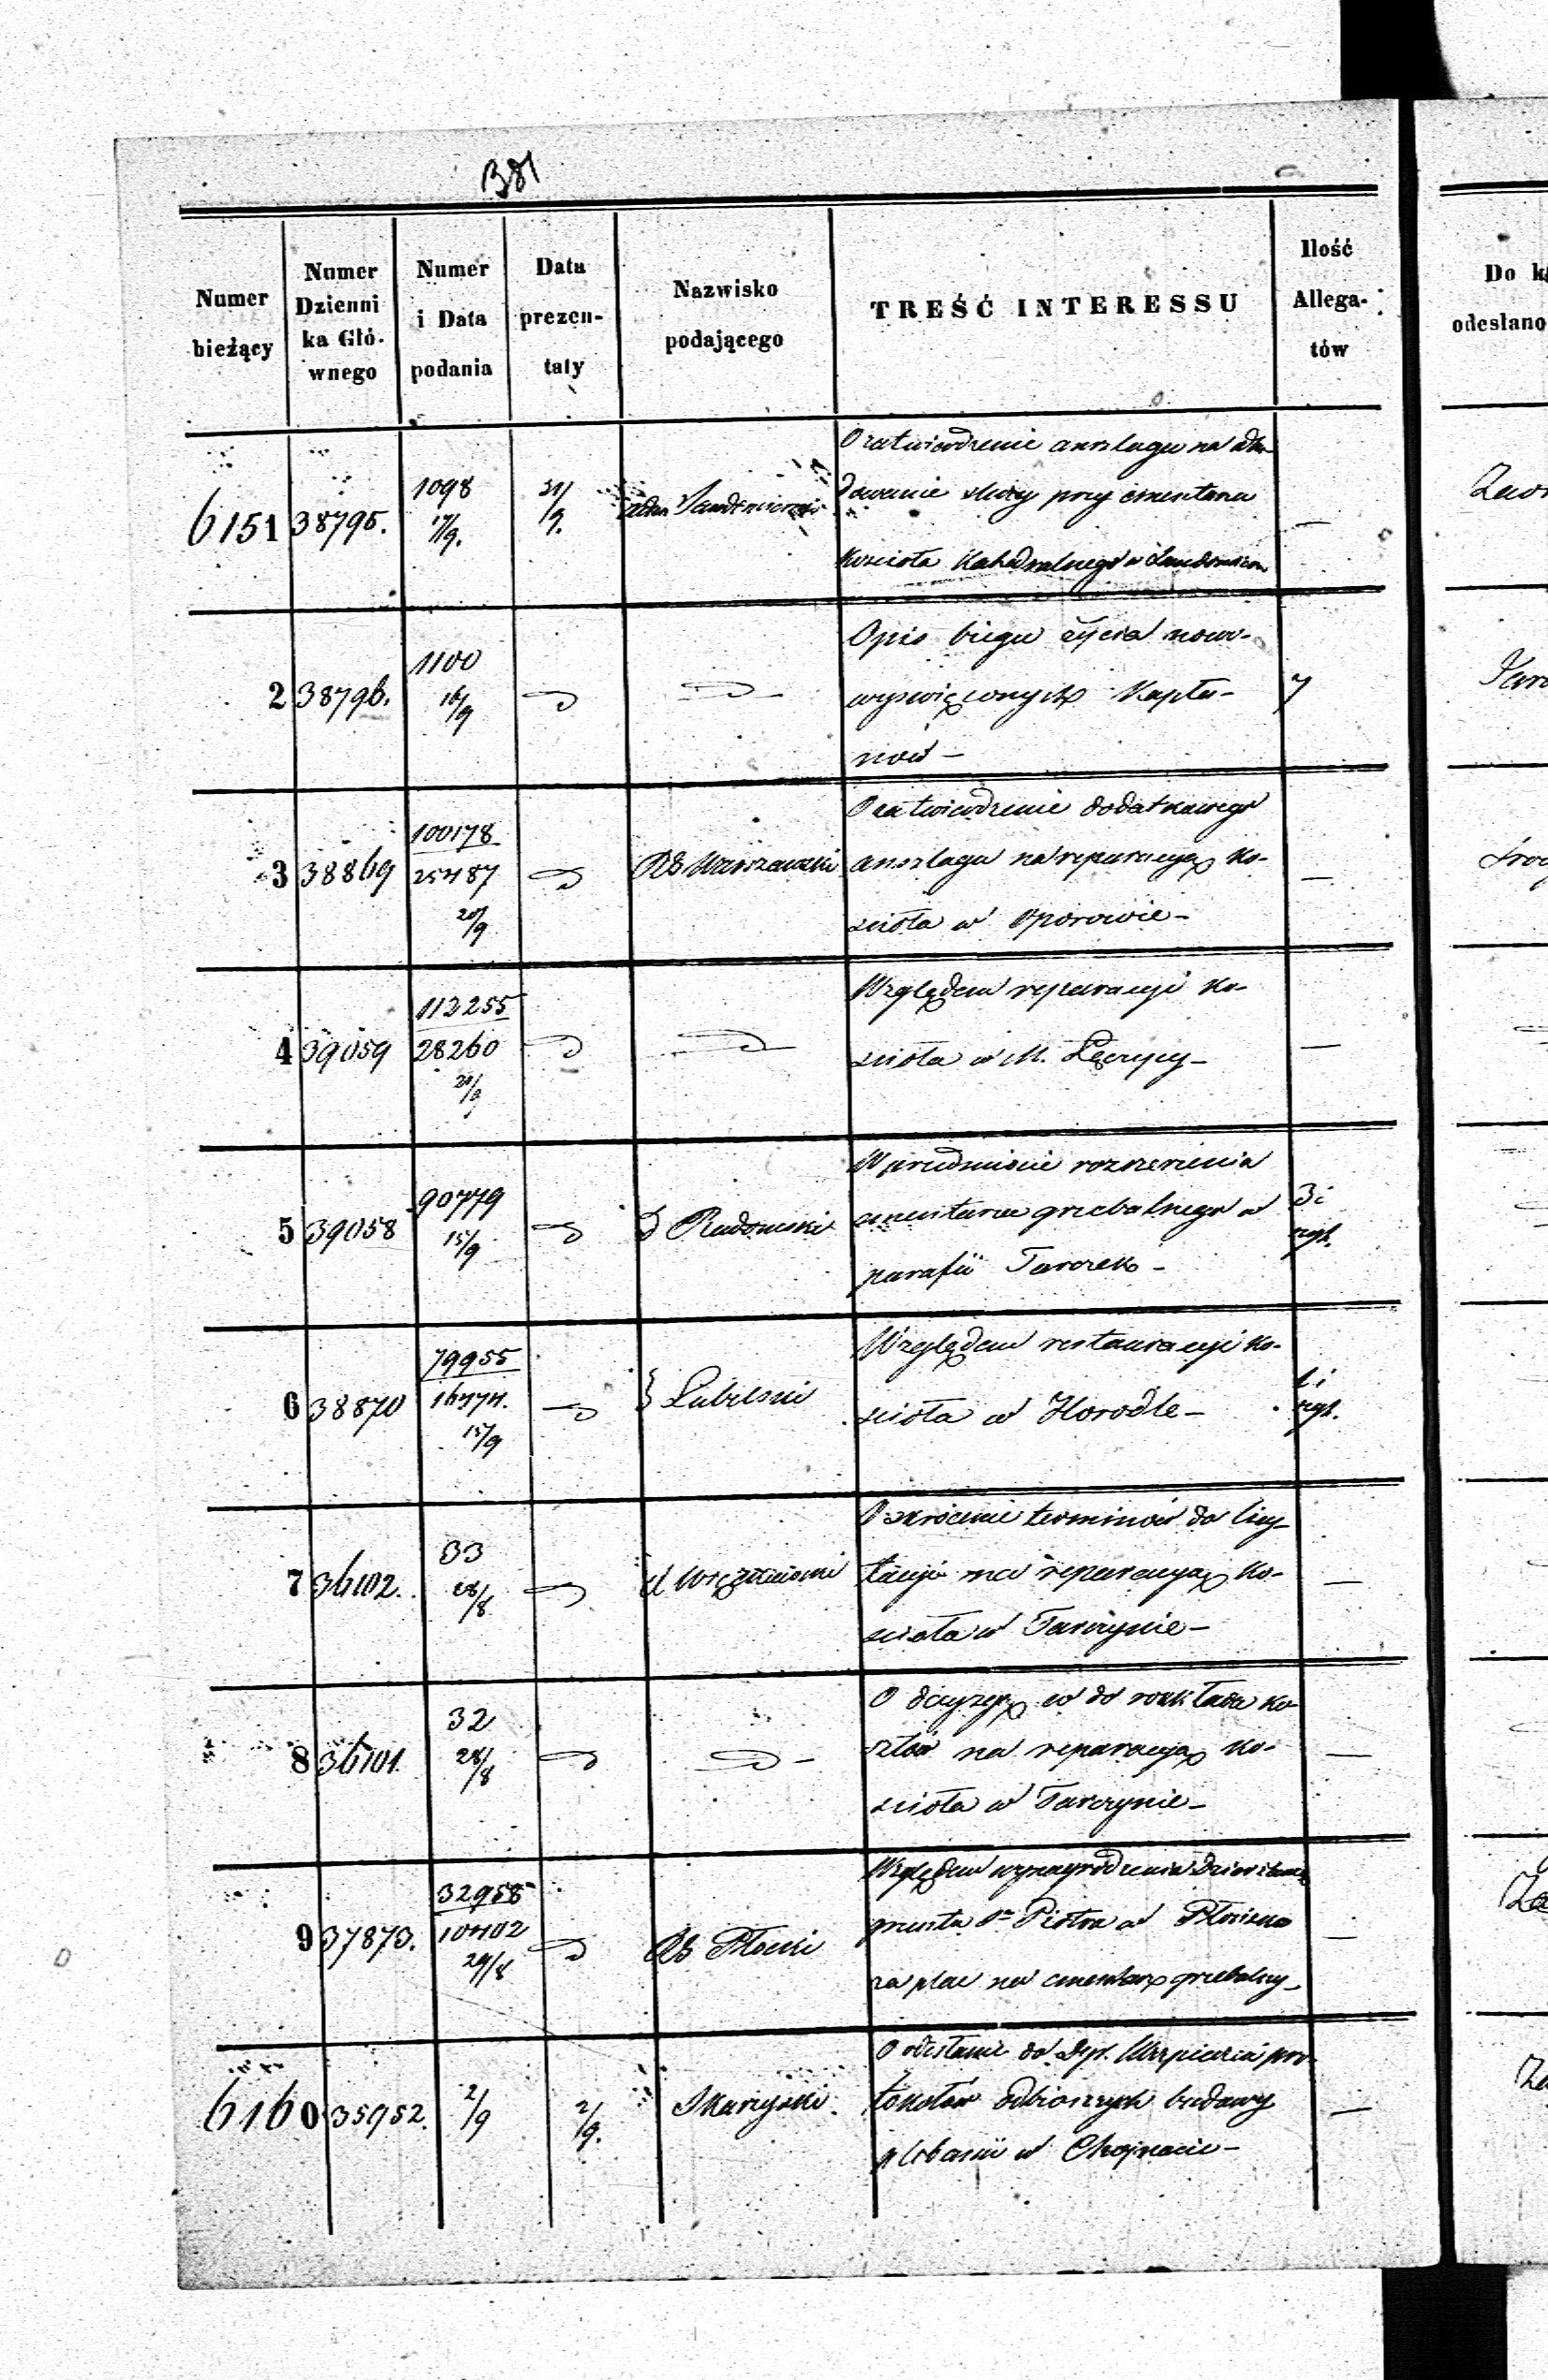 381
Numer bieżący
Numer Dzienni ka Głó. wnego
Numer i Data podania
Data prezen- taty
Nazwisko podającego
TREŚĆ INTERESSU
Ilość Allega- tów
Do k
odesłano
6151 38795. 1098 17/9. 21/9. Sandomierski
O zatwierdzenie anszlagu na
dowanie przy cmentarzu —
Kościoła Katedralnego w Sandomierzu
2 38796. 1100 16/9
Opis biegu życia nowo-
wyświęconych Kapła- 7
nów —
3 38869 100178 25487 20/9 RG Warszawski
O zatwierdzenie dodatkowego
anszlagu na reparacyą Ko- —
ścioła w Oporowie —
4 39059 112255 28260 20/9
Względem reparacyi Ko-
ścioła w M. Łęczycy — —
5 39058 90779 15/9 Radomski
W przedmiocie rozszerzenia
cmentarza grzebalnego w 3 i
parafii Tarczek —
6 38870 79955 15/9 Lubelski
Względem restauracyi Ko-
ścioła w Horodle —
7 36102. 33 28/8
O skrócenie terminów do licy-
tacyi na reparacyą Ko- —
ścioła w Tarczynie —
8 36101. 32 28/8
O decyzyą co do rozkładu ko-
sztów na reparacyą Ko- —
ścioła w Tarczynie —
9 37873. 32958 10402 29/8 RG Płocki
Względem wynagrodzenia
gruntu Piotra w —
za plac na cmentarz grzebalny —
6160 35952. 2/9 2/9. Skarzyski
O odesłanie do Dyr. Ubezpieczeń pro-
tokołów odbiorczych budowy —
plebanii w Chojnacie —